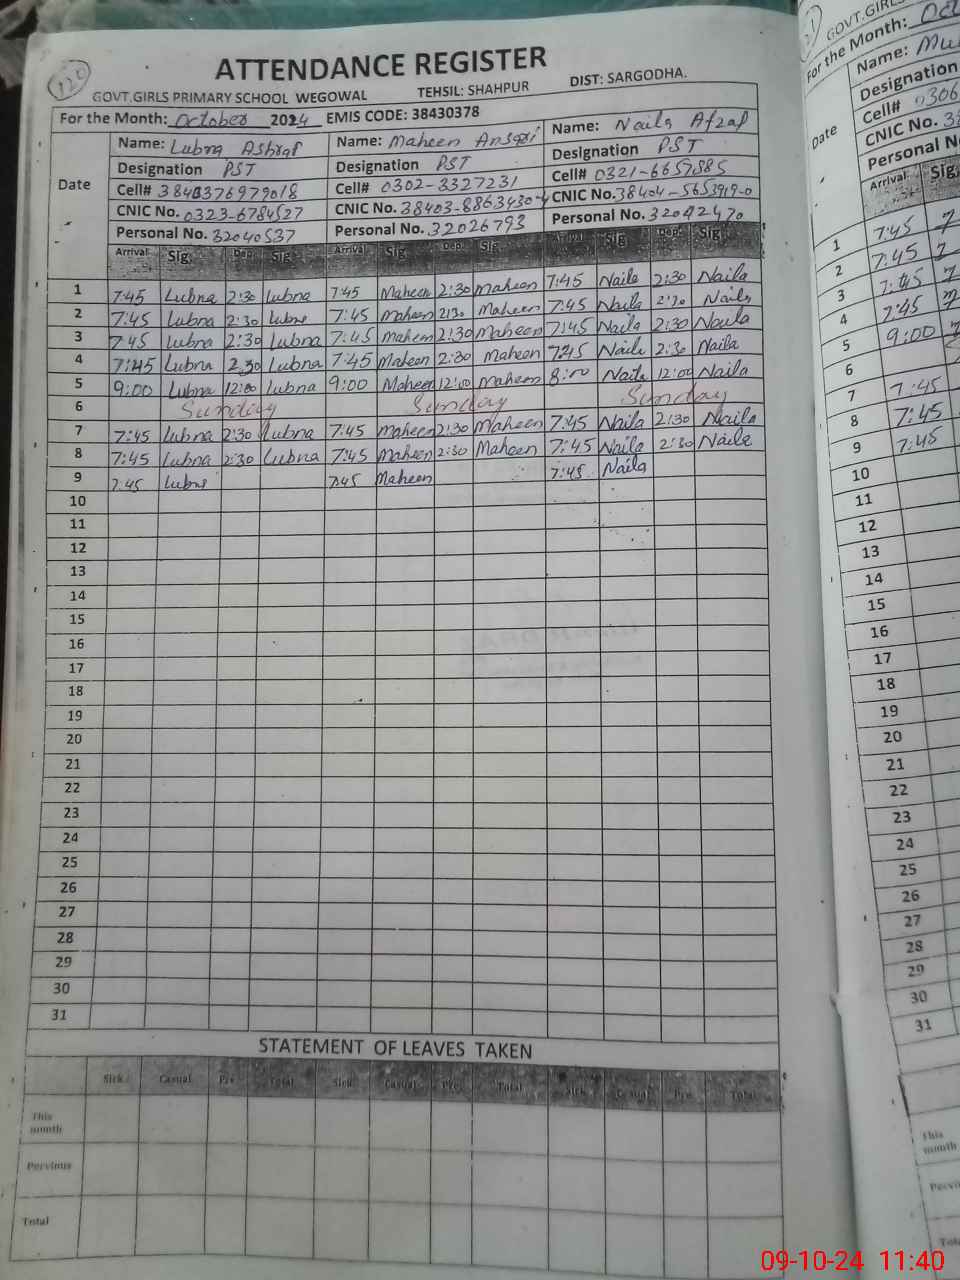 120
ATTENDANCE REGISTER
GOVT.GIRLS PRIMARY SCHOOL WEGOWAL TEHSIL: SHAHPUR DIST: SARGODHA.
For the Month: October 2024 EMIS CODE: 38430378
Date
Name: Lubna Ashraf Name: Maheen Ansari Name: Naila Afzal
Designation PST Designation PST Designation PST
Cell# 3840376979018 Cell# 0302-3327231 Cell# 0321-6657885
CNIC No. 0323-6784527 CNIC No. 38403-8863430-4 CNIC No. 38404-5653919-0
Personal No. 32040537 Personal No. 32026793 Personal No. 32042470
Arrival Sig Dep: Sig Arrival Sig Dep: Sig Arrival Sig Dep: Sig
1 7:45 Lubna 2:30 Lubna 7:45 Maheen 2:30 Maheen 7:45 Naila 2:30 Naila
2 7:45 Lubna 2:30 Lubna 7:45 Maheen 2:30 Maheen 7:45 Naila 2:30 Naila
3 7:45 Lubna 2:30 Lubna 7:45 Maheen 2:30 Maheen 7:45 Naila 2:30 Naila
4 7:45 Lubna 2:30 Lubna 7:45 Maheen 2:30 Maheen 7:45 Naila 2:30 Naila
5 9:00 Lubna 12:00 Lubna 9:00 Maheen 12:00 Maheen 8:00 Naila 12:00 Naila
6 Sunday Sunday Sunday
7 7:45 Lubna 2:30 Lubna 7:45 Maheen 2:30 Maheen 7:45 Naila 2:30 Naila
8 7:45 Lubna 2:30 Lubna 7:45 Maheen 2:30 Maheen 7:45 Naila 2:30 Naila
9 7:45 Lubna 7:45 Maheen 7:45 Naila
10
11
12
13
14
15
16
17
18
19
20
21
22
23
24
25
26
27
28
29
30
31
STATEMENT OF LEAVES TAKEN
Sick Casual Pre Total Sick Casual Pre Total Sick Casual Pre Total
This month
Pervious
Total
21
GOVT.GIRL
For the Month: Oct
Name: Mu
Designation
Cell# 0306
CNIC No. 3
Personal N
Date
Arrival Sig
1 7:45
2 7:45
3 7:45
4 7:45
5 9:00
6
7 7:45
8 7:45
9 7:45
10
11
12
13
14
15
16
17
18
19
20
21
22
23
24
25
26
27
28
29
30
31
This month
Pervi
Tota
09-10-24 11:40